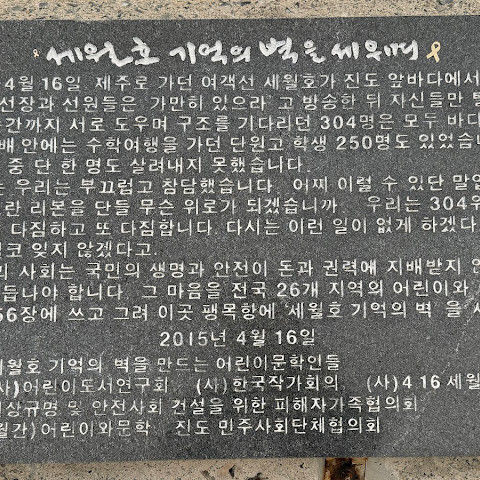 세월호 기억의 벽을 세우며
4월 16일 제주로 가던 여객선 세월호가 진도 앞바다에서
선장과 선원들은 '가만히 있으라' 고 방송한 뒤 자신들만
순간까지 서로 도우며 구조를 기다리던 304명은 모두 바다
배 안에는 수학여행을 가던 단원고 학생 250명도 있었습니
중 단 한 명도 살려내지 못했습니다.
는 우리는 부끄럽고 참담했습니다. 어찌 이럴 수 있단 말입
란 리본을 단들 무슨 위로가 되겠습니까. 우리는 304위
다짐하고 또 다짐합니다. 다시는 이런 일이 없게 하겠다
코 잊지 않겠다고.
의 사회는 국민의 생명과 안전이 돈과 권력에 지배받지 않
듭나야 합니다. 그 마음을 전국 26개 지역의 어린이와
56장에 쓰고 그려 이곳 팽목항에 '세월호 기억의 벽' 을
2015년 4월 16일
세월호 기억의 벽을 만드는 어린이문학인들
사)어린이도서연구회 (사)한국작가회의 (사)4 16 세월
상규명 및 안전사회 건설을 위한 피해자가족협의회
월간)어린이와문학 진도 민주사회단체협의회